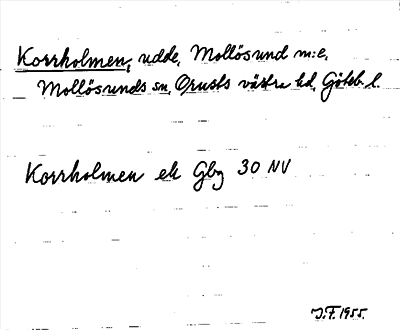 Korrholmen, udde, Mollösund m:e,
Mollösunds sn, Orusts västra hd, Göteb. l.
Korrholmen ek Gbg 30 NV
J.F. 1955.